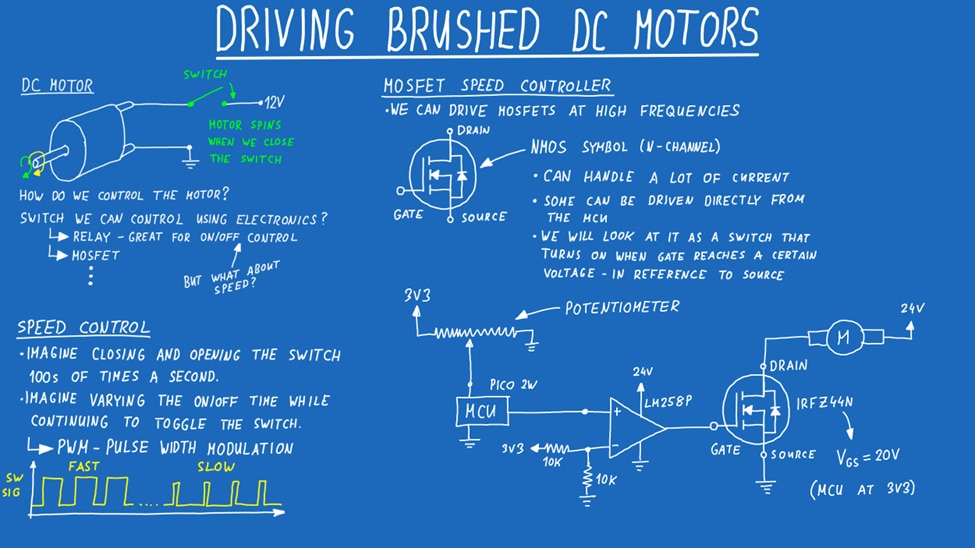 DRIVING BRUSHED DC MOTORS
DC MOTOR
SWITCH
12V
MOTOR SPINS
WHEN WE CLOSE
THE SWITCH
HOW DO WE CONTROL THE MOTOR?
SWITCH WE CAN CONTROL USING ELECTRONICS?
RELAY - GREAT FOR ON/OFF CONTROL
MOSFET
BUT WHAT ABOUT
SPEED?
SPEED CONTROL
• IMAGINE CLOSING AND OPENING THE SWITCH
100s OF TIMES A SECOND.
• IMAGINE VARYING THE ON/OFF TIME WHILE
CONTINUING TO TOGGLE THE SWITCH.
PWM - PULSE WIDTH MODULATION
FAST
SLOW
SW
SIG
MOSFET SPEED CONTROLLER
• WE CAN DRIVE MOSFETS AT HIGH FREQUENCIES
DRAIN
GATE
SOURCE
NMOS SYMBOL (N-CHANNEL)
• CAN HANDLE A LOT OF CURRENT
• SOME CAN BE DRIVEN DIRECTLY FROM
THE MCU
• WE WILL LOOK AT IT AS A SWITCH THAT
TURNS ON WHEN GATE REACHES A CERTAIN
VOLTAGE - IN REFERENCE TO SOURCE
3V3
POTENTIOMETER
PICO 2W
MCU
24V
LM258P
+
-
3V3
10K
10K
24V
M
DRAIN
IRFZ44N
GATE
SOURCE
VGS = 20V
(MCU AT 3V3)